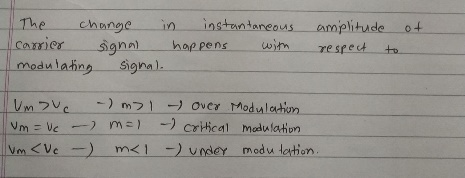 The change in instantaneous amplitude of
carrier signal happens with respect to
modulating signal.
Vm > Vc -> m>1 -> over Modulation
Vm = Vc -> m=1 -> critical modulation
Vm < Vc -> m<1 -> under modulation.